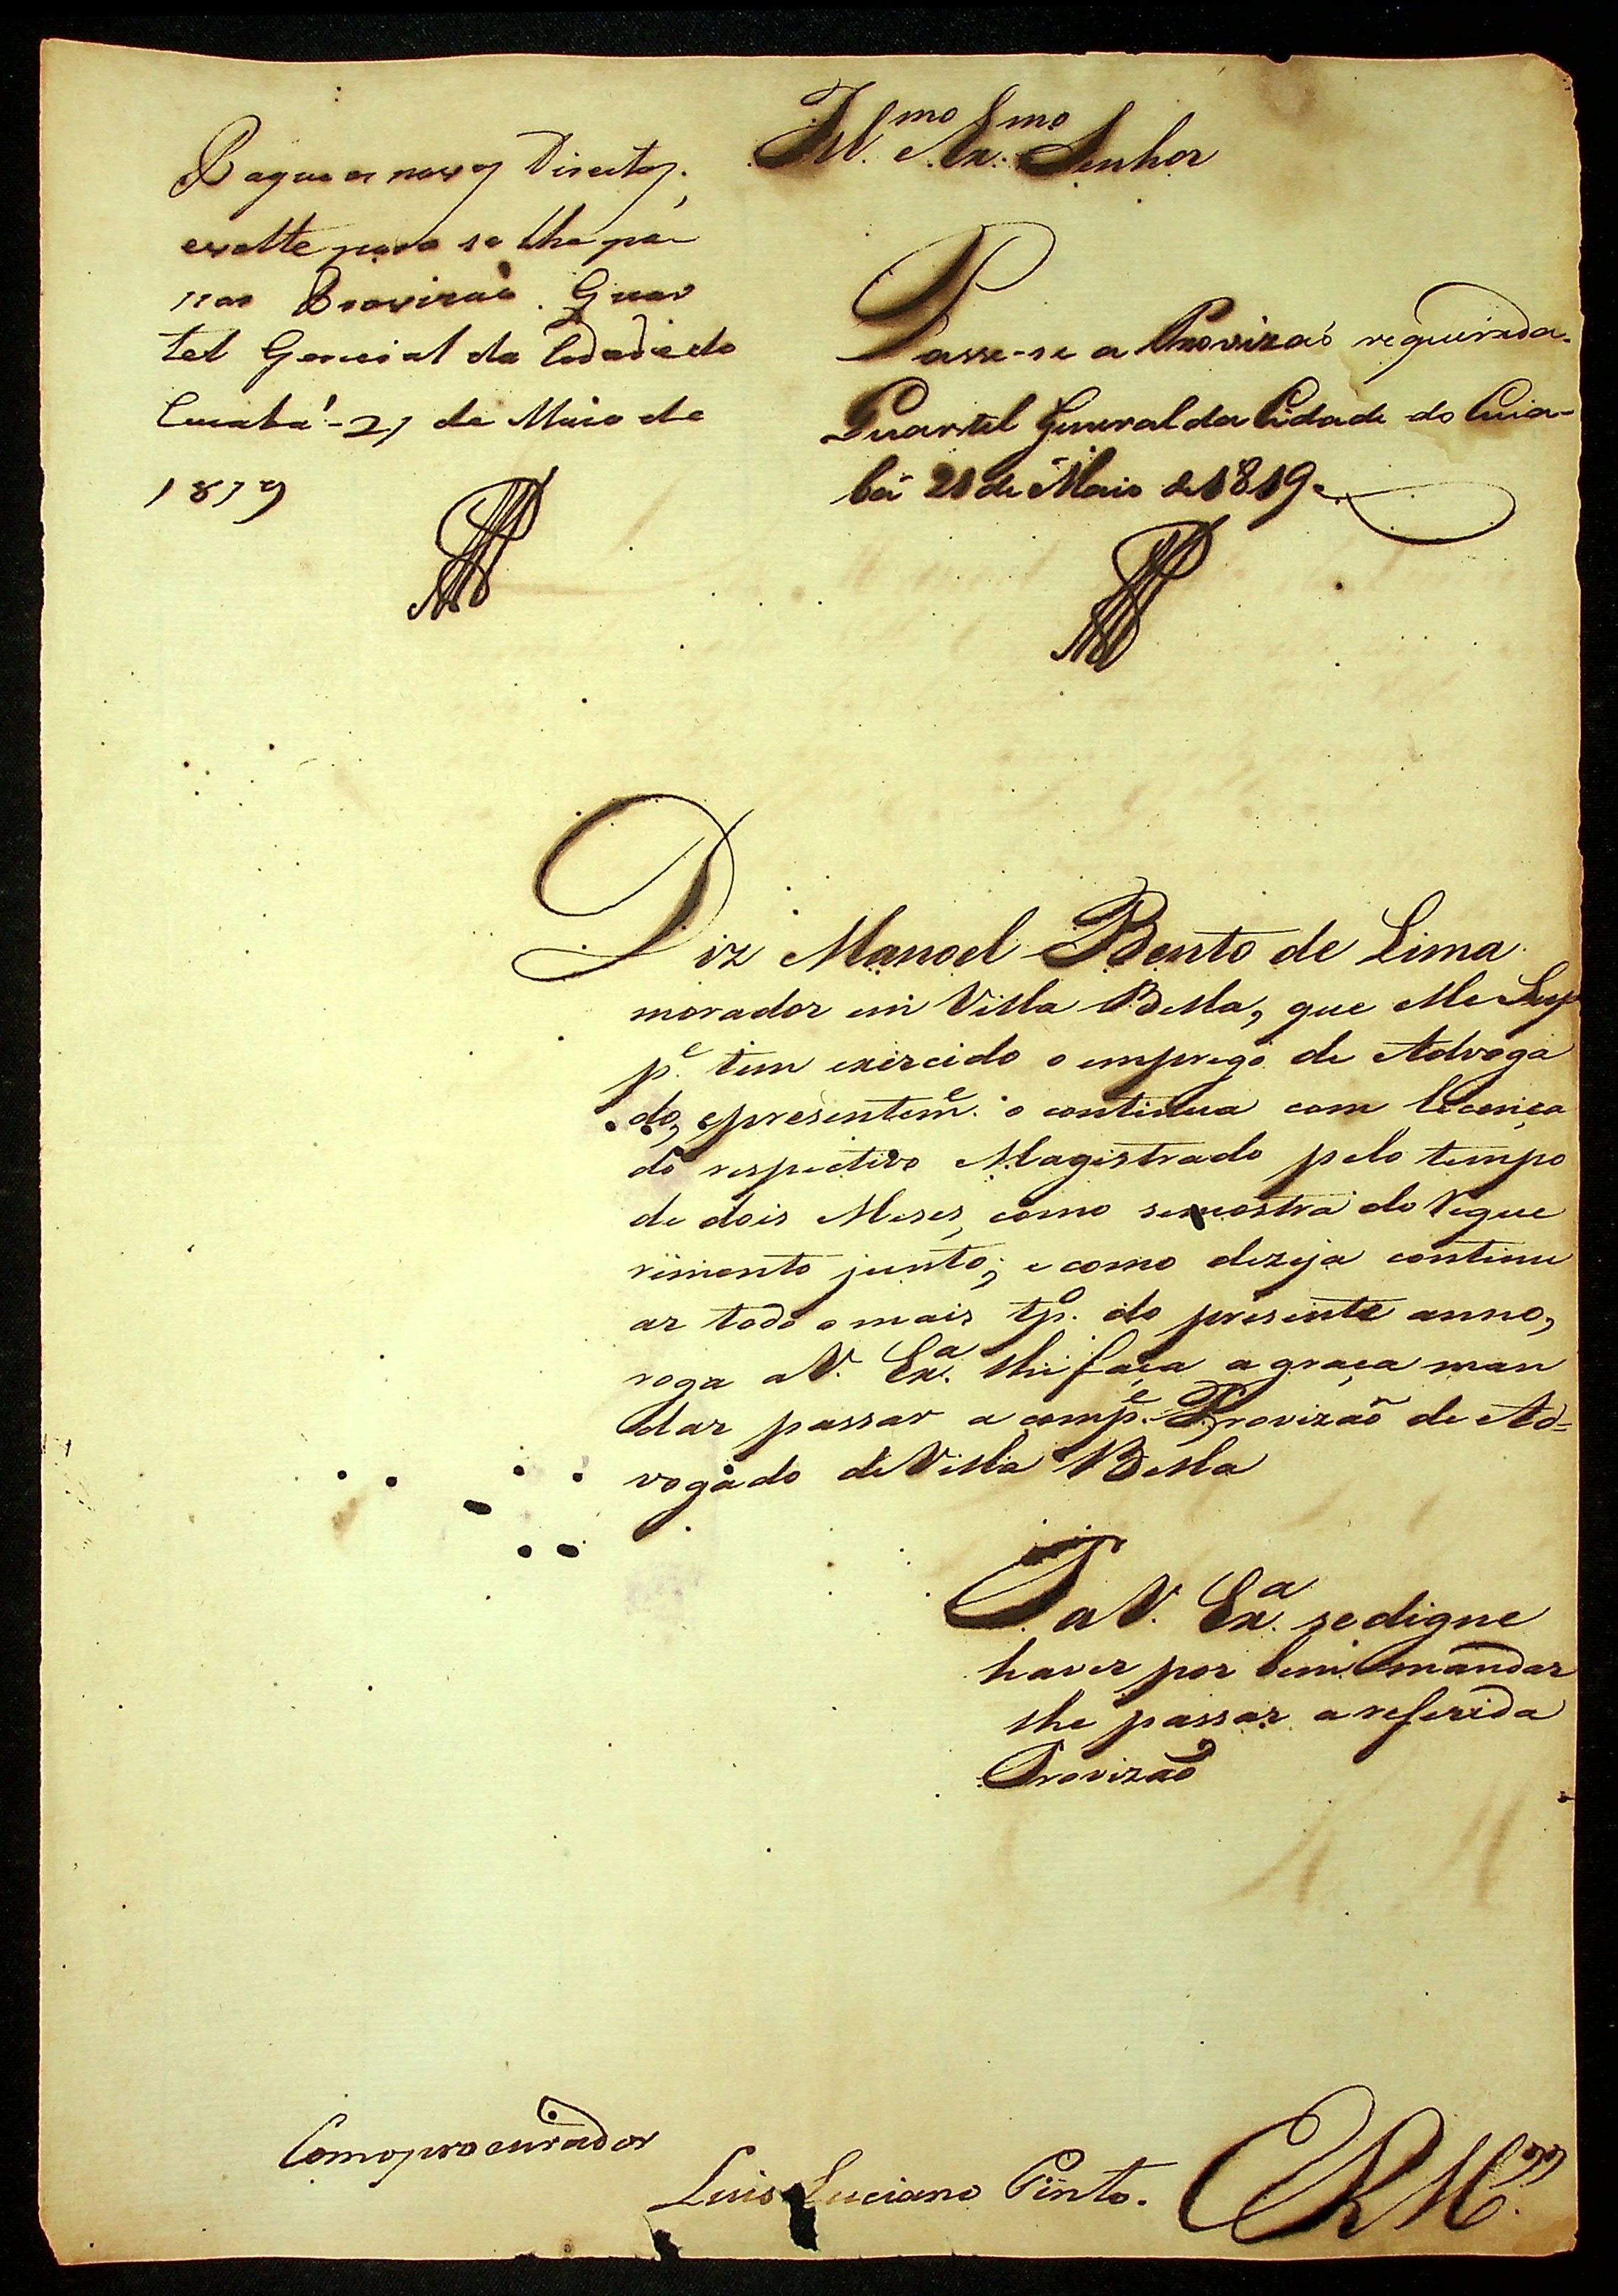 Ill.mo e Ex.mo Senhor
Pague os novos Direitos,
e volte para se lhe pa-
ssar Provizaõ. Quar
tel General da Cidade do
Cuiabá 21 de Maio de
1819
Passe-se a Provizaõ requerida.
Quartel General da Cidade do Cuia-
bá 21 de Maio de 1819.
Diz Manoel Bento de Lima
morador em Villa Bella, que elle Sup
p.e tem exercido o emprego de Advoga
do, e presentem.e o continua com licença
do respectivo Magistrado pelo tempo
de dois Meses, como se mostra do reque
rimento junto; e como dezeja continu
ar todo o mais tp.o do presente anno,
roga a V. Ex.a lhe faça a graça man
dar passar a comp.e Provizaõ de Ad=
vogado de Villa Bella
P a V. Ex.a se digne
haver por bem mandar
lhe passar a referida
Provizaõ
Como procurador
Luis Luciano Pinto.
E R M.ce